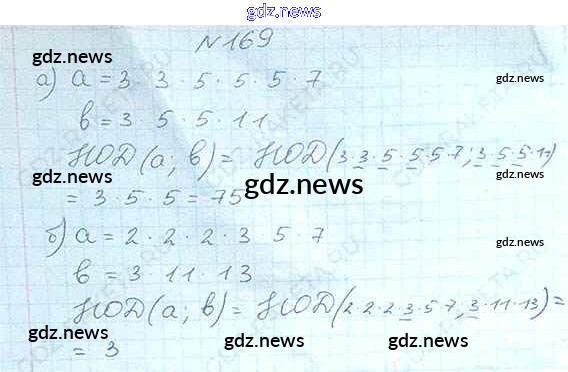 gdz.news
№169
gdz.news
gdz.news
а) a = 3 · 3 · 5 · 5 · 5 · 7
gdz.news
b = 3 · 5 · 5 · 11
НОД(a; b) = НОД(3·3·5·5·5·7; 3·5·5·11)
gdz.news
gdz.news
= 3 · 5 · 5 = 75
gdz.news
б) a = 2 · 2 · 2 · 3 5 · 7
gdz.news
b = 3 · 11 · 13
НОД(a; b) = НОД(2·2·2·3·5·7, 3·11·13) =
gdz.news
gdz.news
gdz.news
= 3